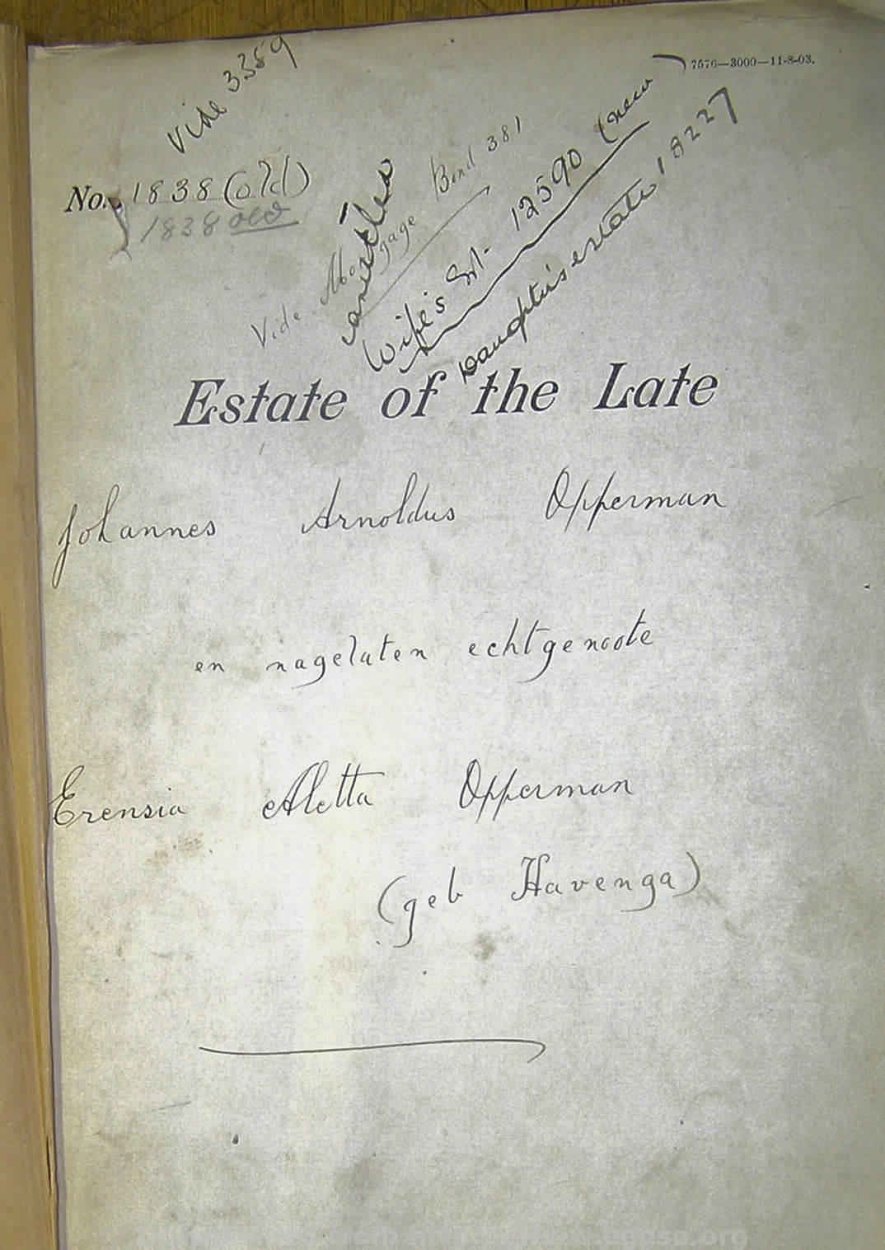 Vide 3389
7576—3000—11-8-03.
No. 1838 (old)
1838 old
Vide Mortgage Bond 381
cancelled
Wife's Est. 12590 (new)
Daughter's estate 18227
Estate of the Late
Johannes Arnoldus Opperman
en nagelaten echtgenoote
Erensia Aletta Opperman
(geb Havenga)